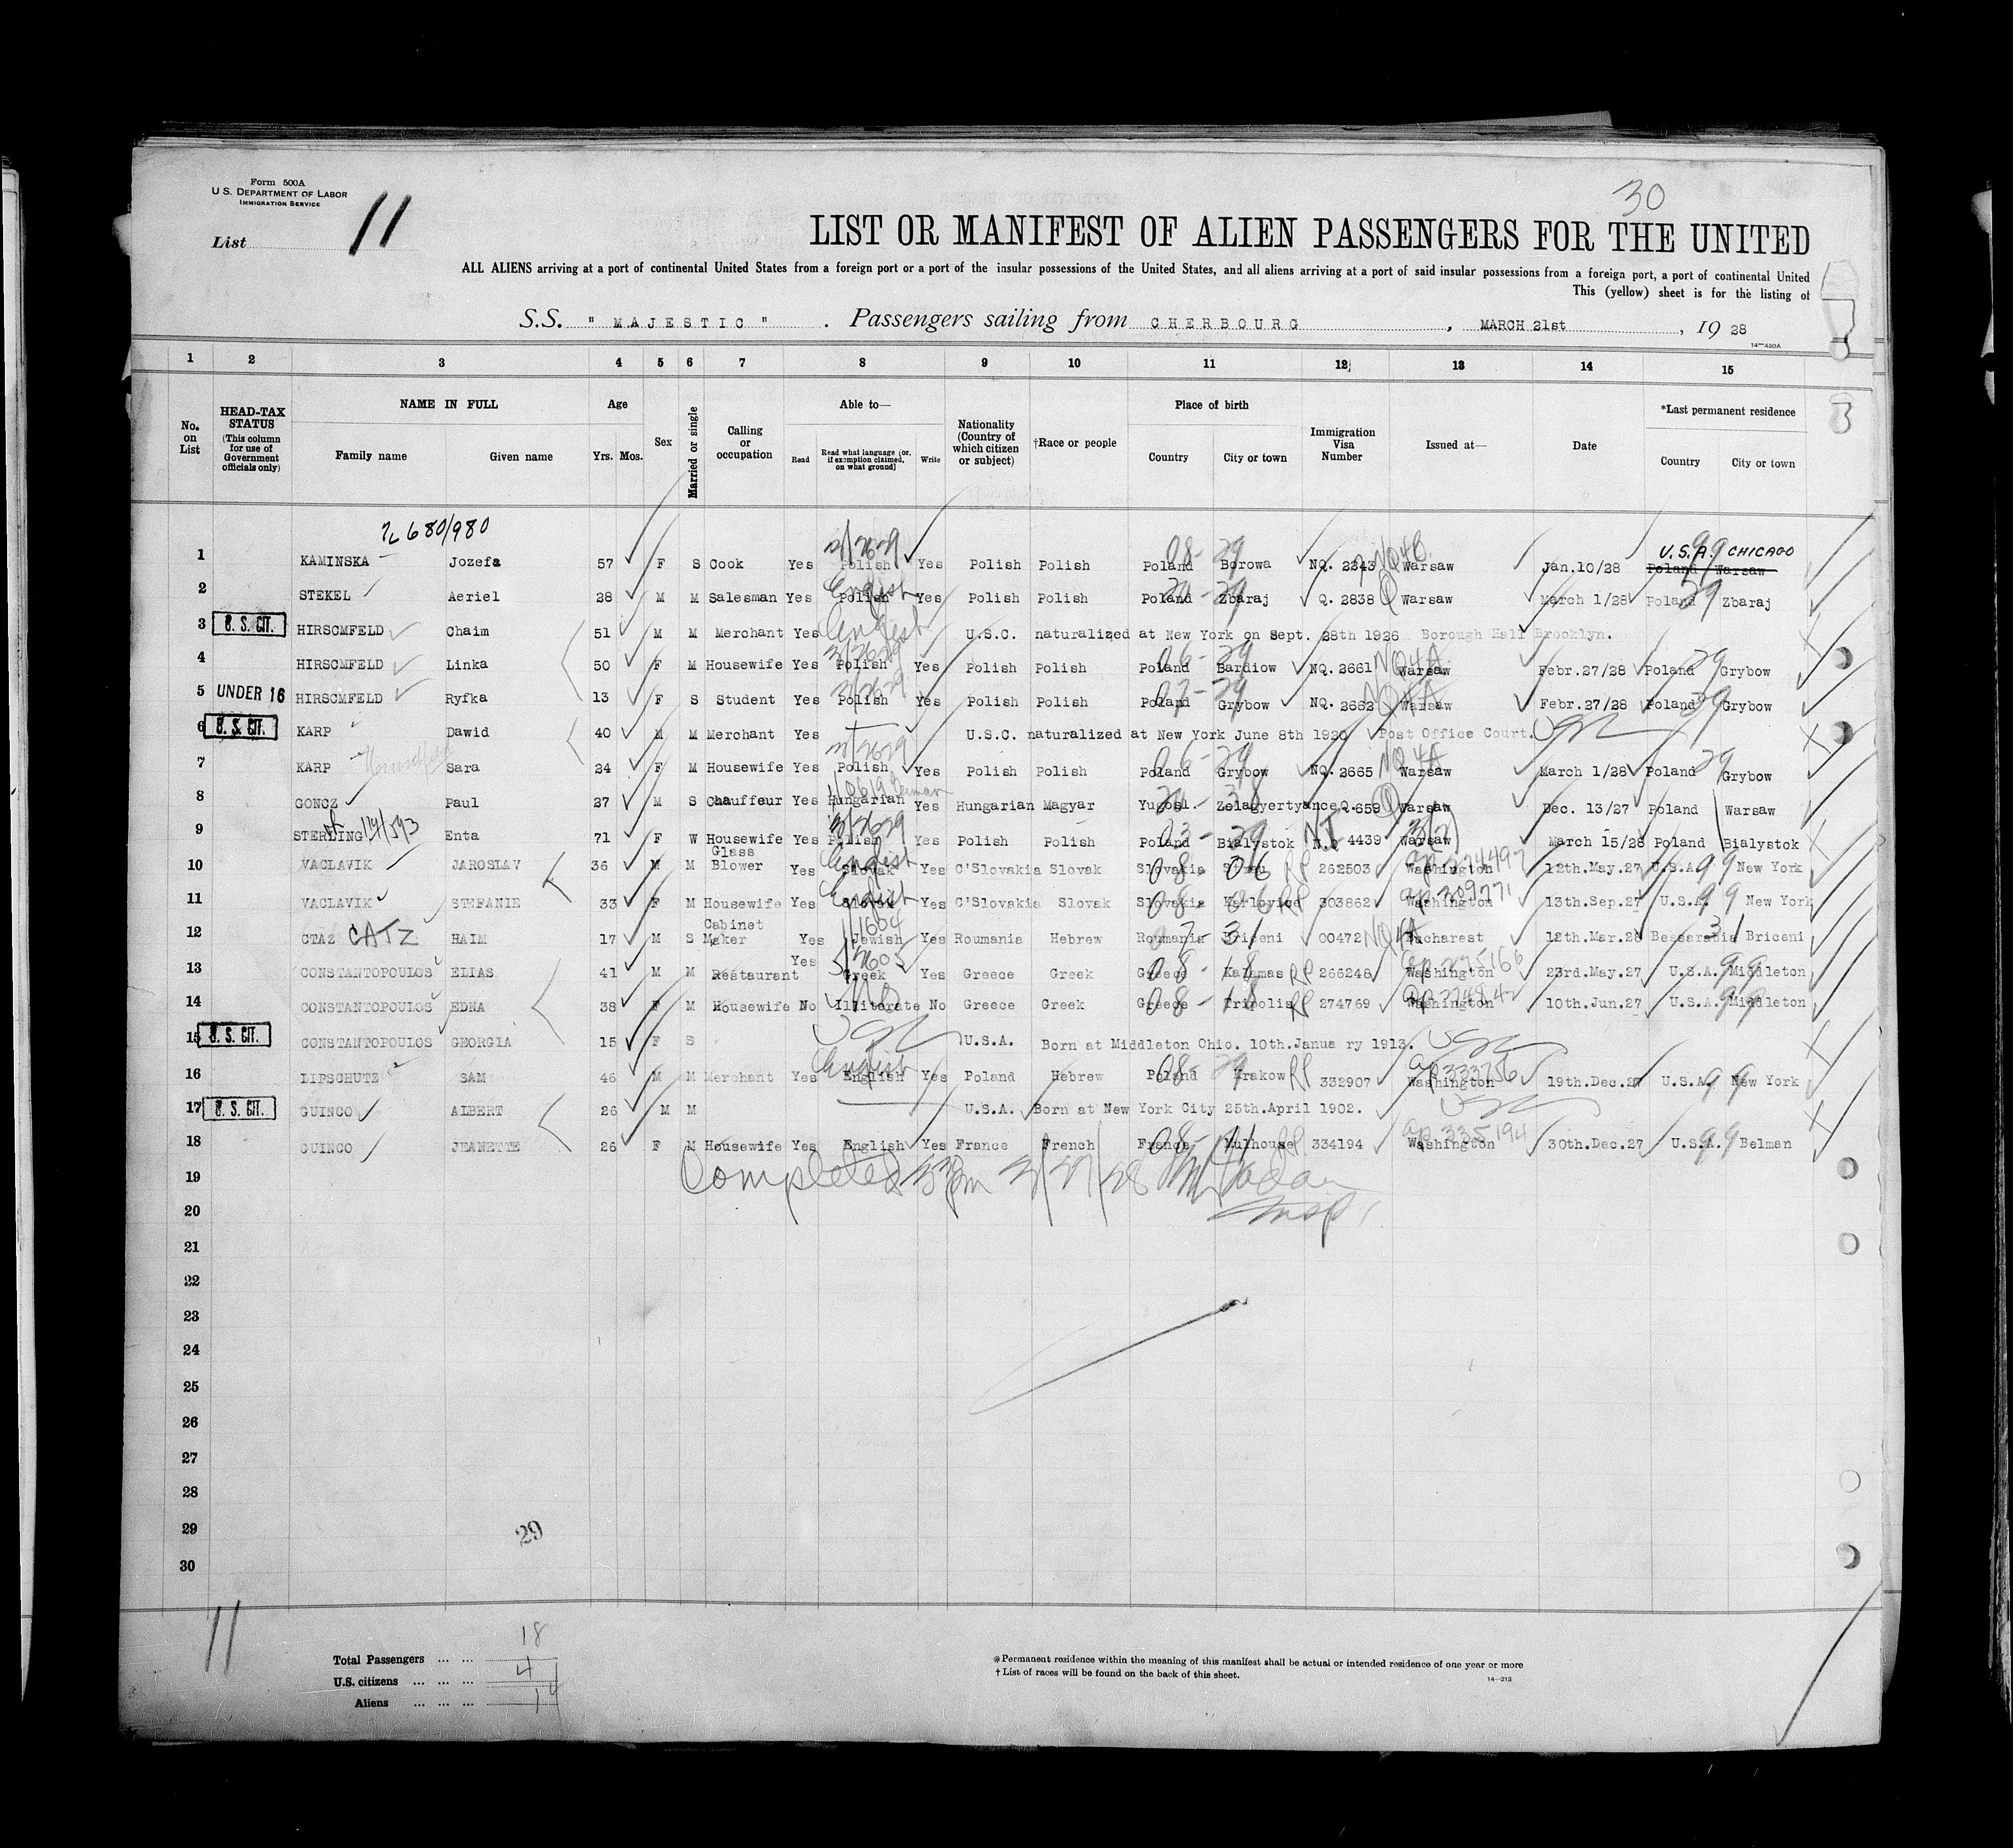 Form 500A
U.S. DEPARTMENT OF LABOR
IMMIGRATION SERVICE
30
List 11
LIST OR MANIFEST OF ALIEN PASSENGERS FOR THE UNITED
ALL ALIENS arriving at a port of continental United States from a foreign port or a port of the insular possessions of the United States, and all aliens arriving at a port of said insular possessions from a foreign port, a port of continental United
This (yellow) sheet is for the listing of
S.S. " MAJESTIC " . Passengers sailing from CHERBOURG , MARCH 21st , 19 28
14—430A
1 2 3 4 5 6 7 8 9 10 11 12 13 14 15
No. on List
HEAD-TAX STATUS (This column for use of Government officials only)
NAME IN FULL Family name Given name
Age Yrs. Mos.
Sex
Married or single
Calling or occupation
Able to— Read Read what language (or, if exemption claimed, on what ground) Write
Nationality (Country of which citizen or subject)
†Race or people
Place of birth Country City or town
Immigration Visa Number
Issued at—
Date
*Last permanent residence Country City or town
680/980
1 KAMINSKA Jozefa 57 F S Cook Yes Polish Yes Polish Polish Poland Borowa NQ. 2343 Warsaw Jan.10/28 Poland Warsaw U.S.A. CHICAGO
2 STEKEL Aeriel 28 M M Salesman Yes Polish English Yes Polish Polish Poland Zbaraj Q. 2838 Warsaw March 1/28 Poland Zbaraj
3 U.S. CIT. HIRSCMFELD Chaim 51 M M Merchant Yes English U.S.C. naturalized at New York on Sept. 28th 1926 Borough Hall Brooklyn.
4 HIRSCMFELD Linka 50 F M Housewife Yes Polish Yes Polish Polish Poland Bardiow NQ. 2661 NQ4A Warsaw Febr.27/28 Poland Grybow
5 UNDER 16 HIRSCMFELD Ryfka 13 F S Student Yes Polish Yes Polish Polish Poland Grybow NQ. 2662 NQ4A Warsaw Febr.27/28 Poland Grybow
6 U.S. CIT. KARP Dawid 40 M M Merchant Yes U.S.C. naturalized at New York June 8th 1920 Post Office Court.
7 KARP Sara 24 F M Housewife Yes Polish Yes Polish Polish Poland Grybow NQ. 2665 NQ4A Warsaw March 1/28 Poland Grybow
8 GONCZ Paul 27 M S Chauffeur Yes Hungarian Yes Hungarian Magyar Yugosl. Zelagyertyance Q.659 Warsaw Dec. 13/27 Poland Warsaw
9 STERLING Enta 71 F W Housewife Yes Polish Yes Polish Polish Poland Bialystok 4439 Warsaw March 15/28 Poland Bialystok
10 VACLAVIK JAROSLAV 36 M M Glass Blower Yes Slovak English Yes C'Slovakia Slovak Slovakia 262503 Washington 12th.May.27 U.S.A. New York
11 VACLAVIK STEFANIE 33 F M Housewife Yes English Yes C'Slovakia Slovak Slovakia Karlovice RP 303862 Washington 13th.Sep.27 U.S.A. New York
12 CTAZ CATZ HAIM 17 M S Cabinet Maker Yes Jewish Yes Roumania Hebrew Roumania Briceni 00472 Bucharest 12th.Mar.28 Bessarabia Briceni
13 CONSTANTOPOULOS ELIAS 41 M M Restaurant Yes Greek Yes Greece Greek Greece Kalamas RP 266248 Washington 23rd.May.27 U.S.A. Middleton
14 CONSTANTOPOULOS EDNA 38 F M Housewife No Illiterate No Greece Greek Greece Tripolis RP 274769 Washington 10th.Jun.27 U.S.A. Middleton
15 U.S. CIT. CONSTANTOPOULOS GEORGIA 15 F S U.S.A. Born at Middleton Ohio. 10th.Janua ry 1913.
16 LIPSCHUTZ SAM 46 M M Merchant Yes English Yes Poland Hebrew Poland Krakow RP 332907 Washington 19th.Dec.27 U.S.A. New York
17 U.S. CIT. GUINCO ALBERT 26 M M U.S.A. Born at New York City 25th.April 1902.
18 GUINCO JEANETTE 26 F M Housewife Yes English Yes France French France Mulhouse RP 334194 Washington 30th.Dec.27 U.S.A. Belman
Completed
19
20
21
22
23
24
25
26
27
28
29
30
29
11
Total Passengers ... ... 18
U.S. citizens ... ... ... 4
Aliens ... ... ... 14
*Permanent residence within the meaning of this manifest shall be actual or intended residence of one year or more
†List of races will be found on the back of this sheet.
14—213